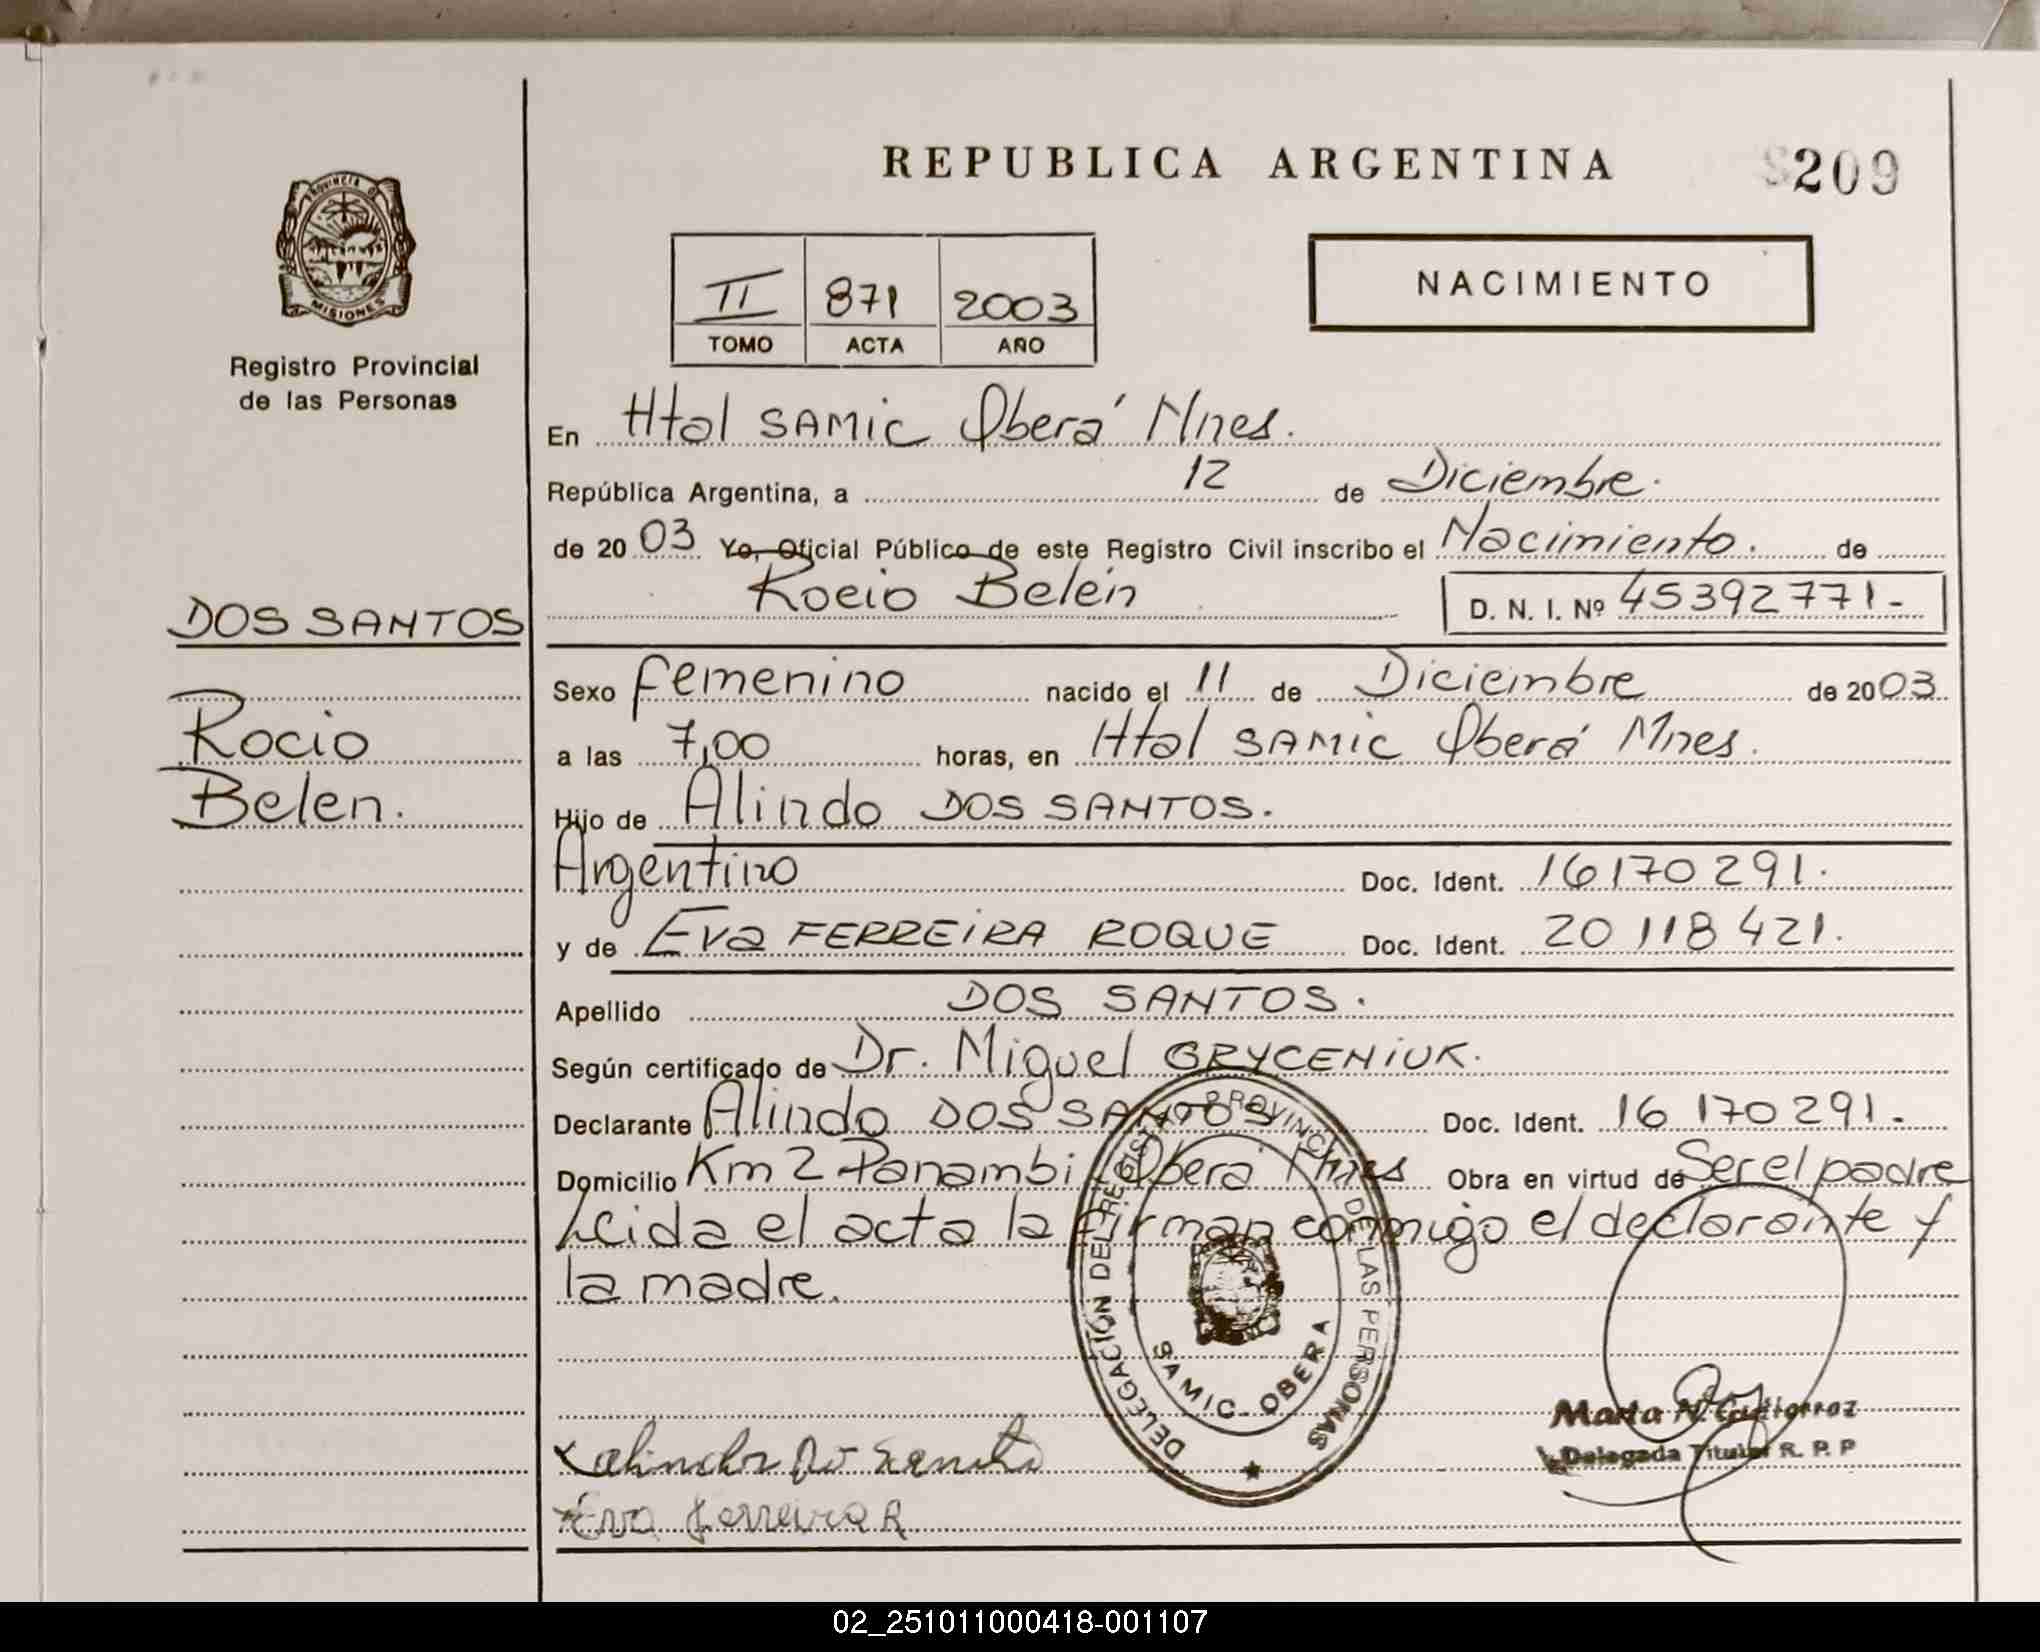 REPUBLICA ARGENTINA
209
PROVINCIA DE
MISIONES
Registro Provincial
de las Personas
II 871 2003
TOMO ACTA AÑO
NACIMIENTO
En Htal SAMIC Oberá Mnes.
República Argentina, a 12 de Diciembre.
de 20 03 Yo, Oficial Público de este Registro Civil inscribo el Nacimiento. de
Rocio Belén D. N. I. Nº 45392771-
DOS SANTOS
Rocio
Belen.
Sexo Femenino nacido el 11 de Diciembre de 20 03
a las 7,00 horas, en Htal SAMIC Oberá Mnes.
Hijo de Alindo DOS SANTOS.
Argentino Doc. Ident. 16170291.
y de Eva FERREIRA ROQUE Doc. Ident. 20118421.
Apellido DOS SANTOS.
Según certificado de Dr. Miguel GRYCENIUK.
Declarante Alindo DOS SANTOS Doc. Ident. 16170291.
Domicilio Km 2 Panambi Oberá Mnes Obra en virtud de Ser el padre
Leida el acta la firman conmigo el declarante y
la madre.
DELEGACIÓN DEL REGISTRO PROVINCIAL DE LAS PERSONAS
SAMIC - OBERA
Marta N. Gutierrez
Delegada Titular R. P. P
Eva Ferreira R
02_251011000418-001107